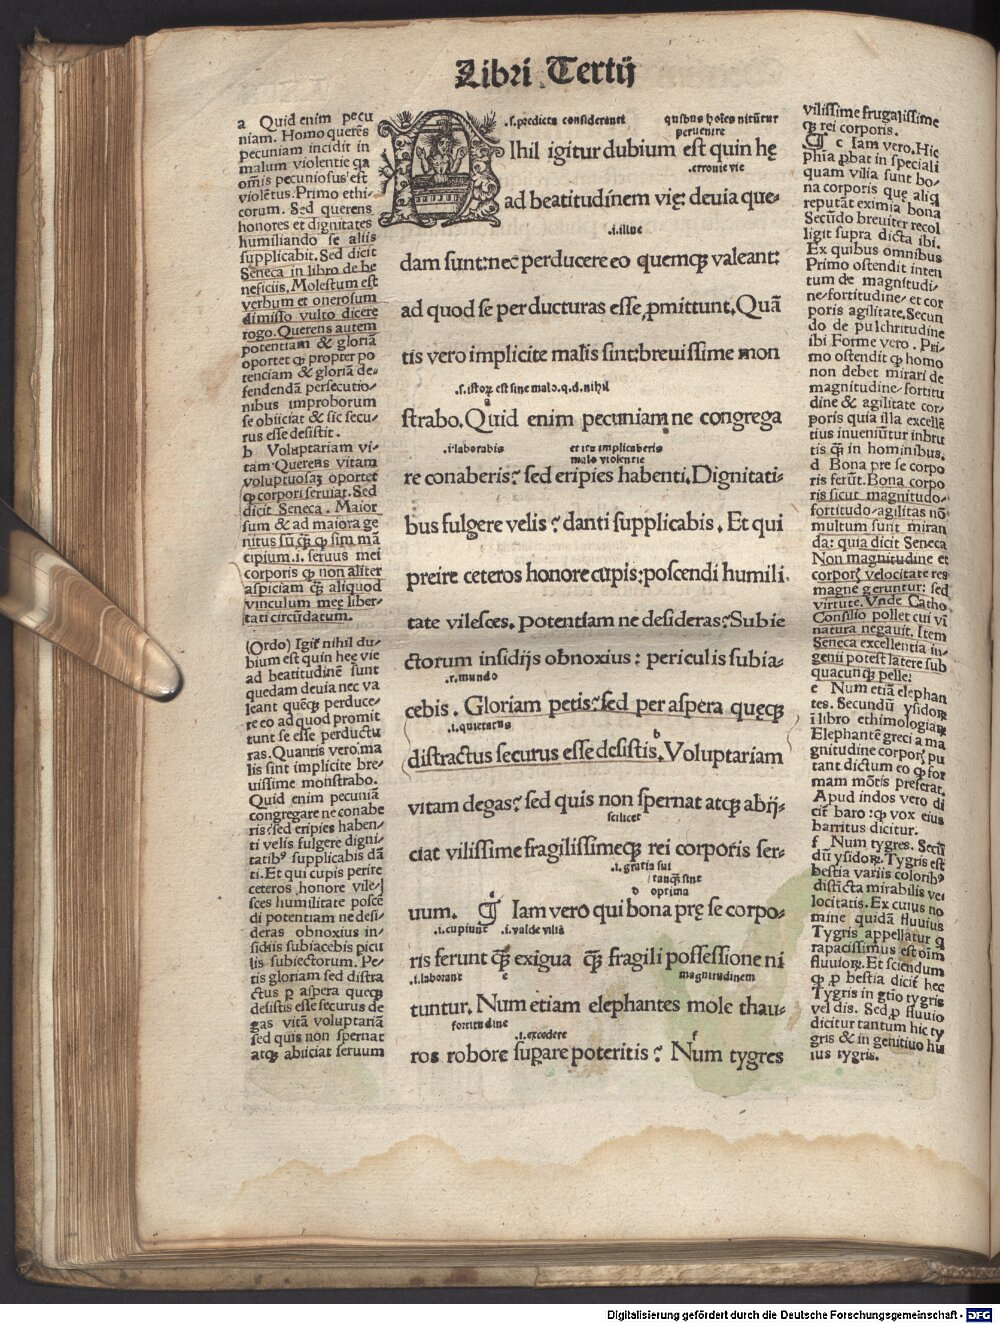 Libri Tertij
a Quid enim pecu
niam. Homo querēs
pecuniam incidit in
malum violentie qa
om̄is pecuniosus est
violētus. Primo ethi-
corum. Sed querens
honores et dignitates
humiliando se aliis
supplicabit. Sed dicit
Seneca in libro de be
neficiis. Molestum est
verbum et onerosum
dimisso vulto dicere
rogo. Querens autem
potentiam & gloriā
oportet ꝙ propter po
tenciam & gloriā de-
fendendā persecutio-
nibus improborum
se obiiciat & sic secu-
rus esse desistit.
b Voluptariam vi-
tam Querens vitam
voluptuosaȝ oportet
ꝙ corpori seruiat. Sed
dicit Seneca. Maior
sum & ad maiora ge
nitus sū ꝙ̄ ꝙ sim mā
cipium .i. seruus mei
corporis ꝙ non aliter
aspiciam ꝙ̄ aliquod
vinculum meę liber-
tati circūdatum.
(Ordo) Igit̄ nihil du-
bium est quin hęe vie
ad beatitudinē sunt
quedam deuia nec va
leant quēqȝ perduce-
re eo ad quod promit
tunt se esse perductu
ras. Quantis vero ma
lis sint implicite bre-
uissime monstrabo.
Quid enim pecuniā
congregare ne conabe
ris? sed eripies haben-
ti velis fulgere digni-
tatibꝰ supplicabis dā
ti. Et qui cupis perire
ceteros honore vile-
sces humilitate poscē
di potentiam ne desi-
deras obnoxius in-
sidiis subiacebis picu
lis subiectorum. Pe-
tis gloriam sed distra
ctus ꝑ aspera queqȝ
desistis esse securus de
gas vitā voluptariā
sed quis non spernat
atqȝ abiiciat seruum
.s. predicta consideranti quibus hoīes nitūtur
peruenire
Ihil igitur dubium est quin hę
.erronie vie
ad beatitudinem vię: deuia que-
.i. illuc
dam sunt: nec perducere eo quemqȝ valeant:
ad quod se perducturas esse ꝓmittunt. Quā
tis vero implicite malis sint: breuissime mon
.s. istoꝝ est sine malo. q.d. nihil
a
strabo. Quid enim pecuniam ne congrega
.i laborabis et ita implicaberis
malo violentie
re conaberis? sed eripies habenti. Dignitati-
bus fulgere velis? danti supplicabis. Et qui
preire ceteros honore cupis: poscendi humili-
tate vilesces. Potentiam ne desideras? Subie
ctorum insidijs obnoxius: periculis subia-
.r. mundo
cebis. Gloriam petis? sed per aspera queqȝ
.i. quietatus b
distractus securus esse desistis. Voluptariam
vitam degas? sed quis non spernat atqȝ abij-
scilicet
ciat vilissime fragilissimeqȝ rei corporis ser-
.i. gratis sui
tanꝙ̄ sint
c d optima
uum. ¶ Iam vero qui bona prę se corpo-
.i. cupiunt .i. valde vilia
ris ferunt ꝙ̄ exigua ꝙ̄ fragili possessione ni
.i. laborant e magnitudinem
tuntur. Num etiam elephantes mole thau-
fortitudine .i. excedere f
ros robore suꝑare poteritis? Num tygres
vilissime fragalissime
qȝ rei corporis.
¶ c Iam vero. Hic
phia ꝓbat in speciali
quam vilia sunt bo-
na corporis que aliq
reputāt eximia bona
Secūdo breuiter recol
ligit supra dicta ibi.
Ex quibus omnibus
Primo ostendit inten
tum de magnitudi-
ne/fortitudine/et cor
poris agilitate. Secun
do de pulchritudine
ibi Forme vero. Pri-
mo ostendit ꝙ homo
non debet mirari de
magnitudine/fortitu
dine & agilitate cor-
poris quia illa excellē
tius inueniūtur in bru
tis ꝙ̄ in hominibus.
d Bona pre se corpo
ris ferūt. Bona corpo
ris sicut magnitudo-
fortitudo/agilitas nō
multum sunt miran
da: quia dicit Seneca
Non magnitudine et
corporȝ velocitate res
magne geruntur: sed
virtute. Vnde Catho
Consilio pollet cui vī
natura negauit. Item
Seneca excellentia in-
genii potest latere sub
quacunqȝ pelle:
e Num etiā elephan
tes. Secundū ysidoꝝ
ī libro ethimologiaꝝ
Elephantē greci a ma
gnitudine corporȝ pu
tant dictum eo ꝙ for
mam mōtis preferat.
Apud indos vero di
cit̄ baro: ꝙ vox eius
barritus dicitur.
f Num tygres. Secū
dū ysidoꝝ. Tygris est
bestia variis coloribꝰ
disticta mirabilis ve-
locitatis. Ex cuius no
mine quidā fluuius
Tygris appellatur q
rapacissimus est oīm
fluuioꝝ. Et sciendum
ꝙ ꝓ bestia dicit̄ hec
Tygris in gtīo tygris
vel dis. Sed ꝓ fluuio
dicitur tantum hic ty
gris & in genitiuo hu
ius tygris.
Digitalisierung gefördert durch die Deutsche Forschungsgemeinschaft - DFG